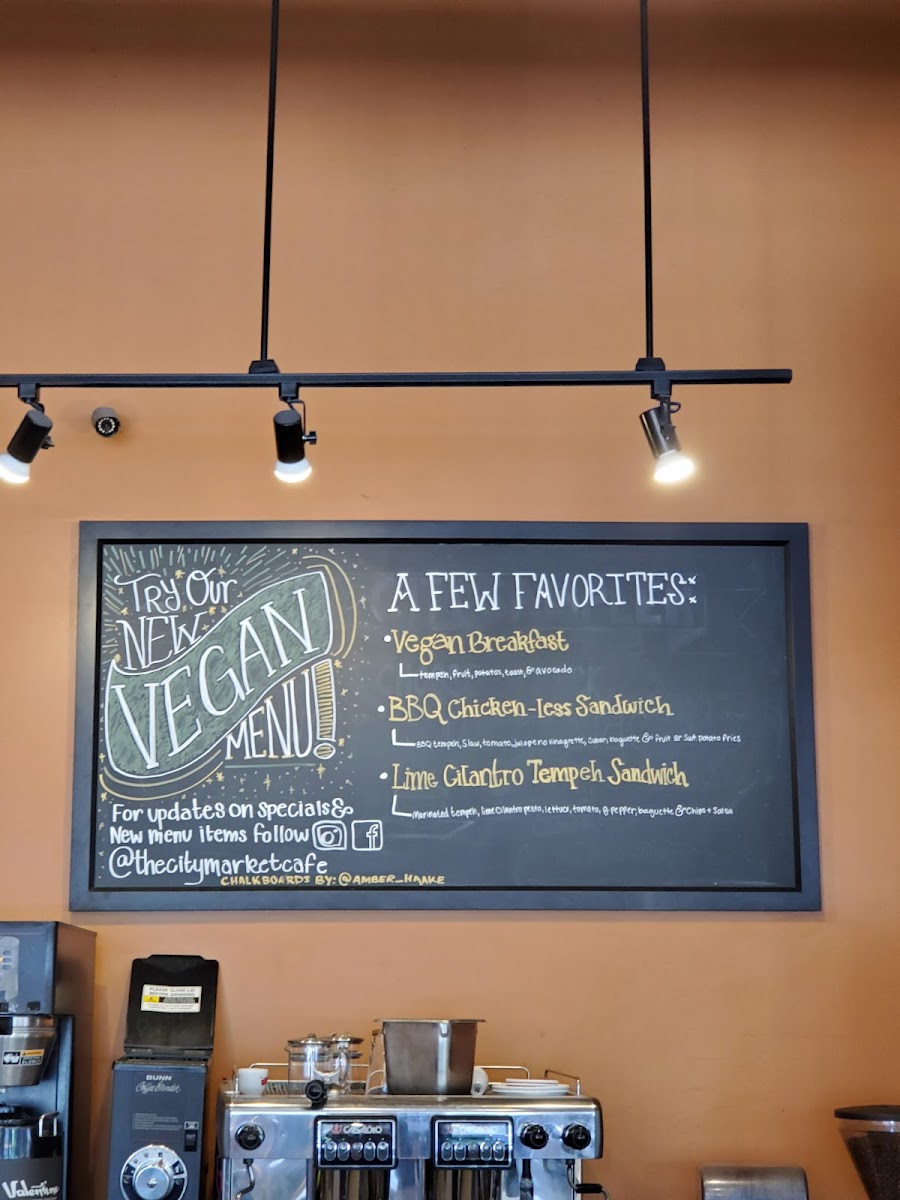 Try Our
NEW
VEGAN
MENU!
For updates on specials &
New menu items follow
@thecitymarketcafe
CHALKBOARDS BY: @AMBER_HAAKE
A FEW FAVORITES:
Vegan Breakfast
tempeh, fruit, potatos, toast, & avocado
BBQ Chicken-less Sandwich
BBQ tempeh, slaw, tomato, jalapeno vinagrette, Cuban baguette & fruit or Swt. potato fries
Lime Cilantro Tempeh Sandwich
Marinated tempeh, lime cilantro pesto, lettuce, tomato, & pepper, baguette & Chips + Salsa
PLEASE CLOSE LID
BEFORE GRINDING
BUNN
Coffee Grinder
CASADIO
CASADIO